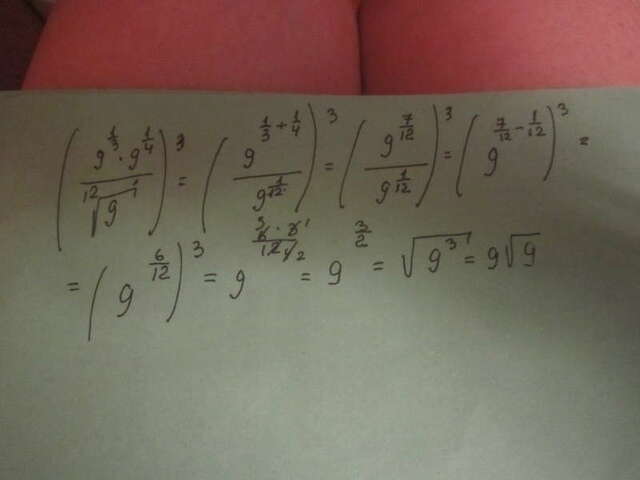 (9^(1/3) · 9^(1/4) / ¹²√9)³ = (9^(1/3 + 1/4) / 9^(1/12))³ = (9^(7/12) / 9^(1/12))³ = (9^(7/12 - 1/12))³ =
= (9^(6/12))³ = 9^(3/2) = √9³ = 9√9